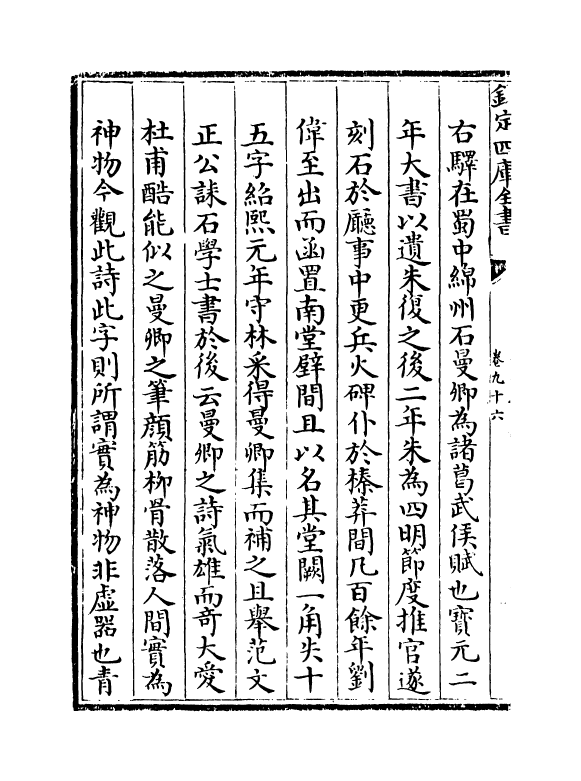 欽定四庫全書
卷九十六
右驛在蜀中綿州石曼卿為諸葛武侯賦也寳元二
年大書以遺朱復之後二年朱為四明節度推官遂
刻石於廳事中更兵火碑仆於榛莽間凡百餘年劉
偉至出而函置南堂壁間且以名其堂闕一角失十
五字紹熙元年守林采得曼卿集而補之且舉范文
正公誄石學士書於後云曼卿之詩氣雄而竒大愛
杜甫酷能似之曼卿之筆顔筋栁骨散落人間實為
神物今觀此詩此字則所謂實為神物非虛器也青